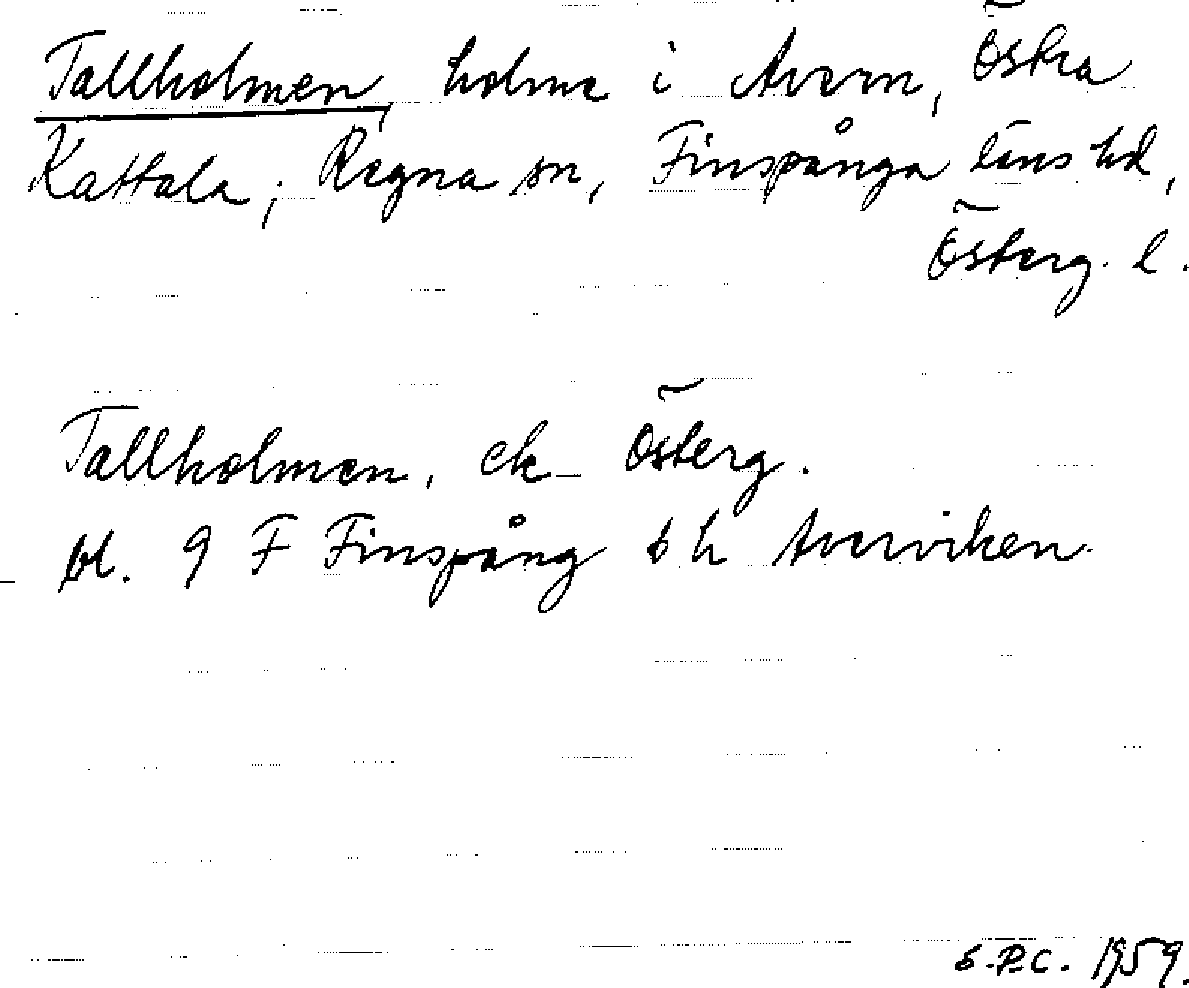 Tallholmen, holme i Avern, Östra
Kattala, Regna sn, Finspånga läns hd,
Österg. l.
Tallholmen, ek Österg.
bl. 9 F Finspång b h Averviken
S.P.C. 1959.